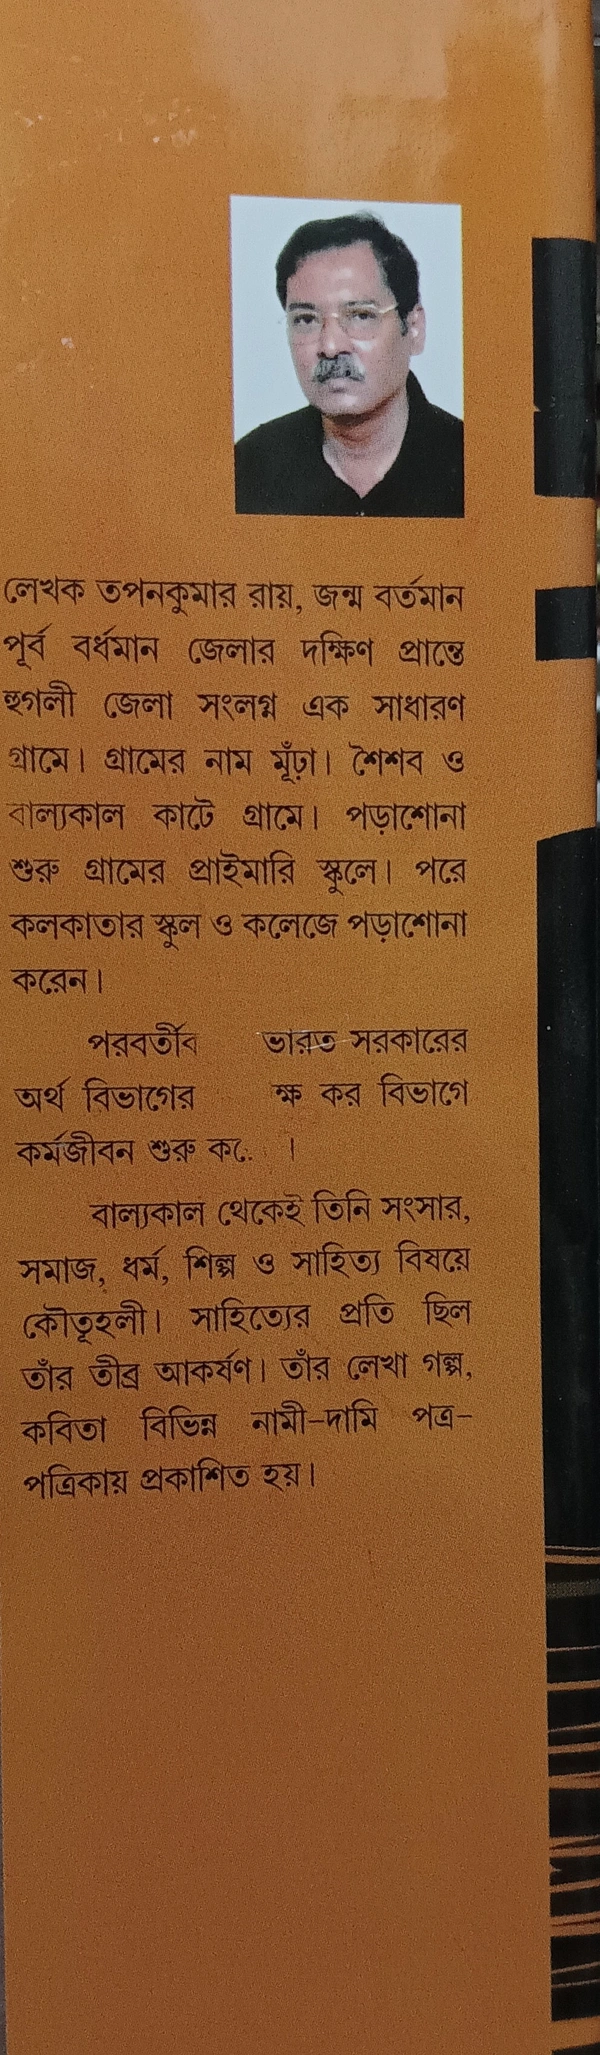 লেখক তপনকুমার রায়, জন্ম বর্তমান
পূর্ব বর্ধমান জেলার দক্ষিণ প্রান্তে
হুগলী জেলা সংলগ্ন এক সাধারণ
গ্রামে। গ্রামের নাম মূঁঢ়া। শৈশব ও
বাল্যকাল কাটে গ্রামে। পড়াশোনা
শুরু গ্রামের প্রাইমারি স্কুলে। পরে
কলকাতার স্কুল ও কলেজে পড়াশোনা
করেন।
ভারত সরকারের
অর্থ বিভাগের কর বিভাগে
কর্মজীবন শুরু
বাল্যকাল থেকেই তিনি সংসার,
সমাজ, ধর্ম, শিল্প ও সাহিত্য বিষয়ে
কৌতূহলী। সাহিত্যের প্রতি ছিল
তাঁর তীব্র আকর্ষণ। তাঁর লেখা গল্প,
কবিতা বিভিন্ন নামী-দামি পত্র-
পত্রিকায় প্রকাশিত হয়।